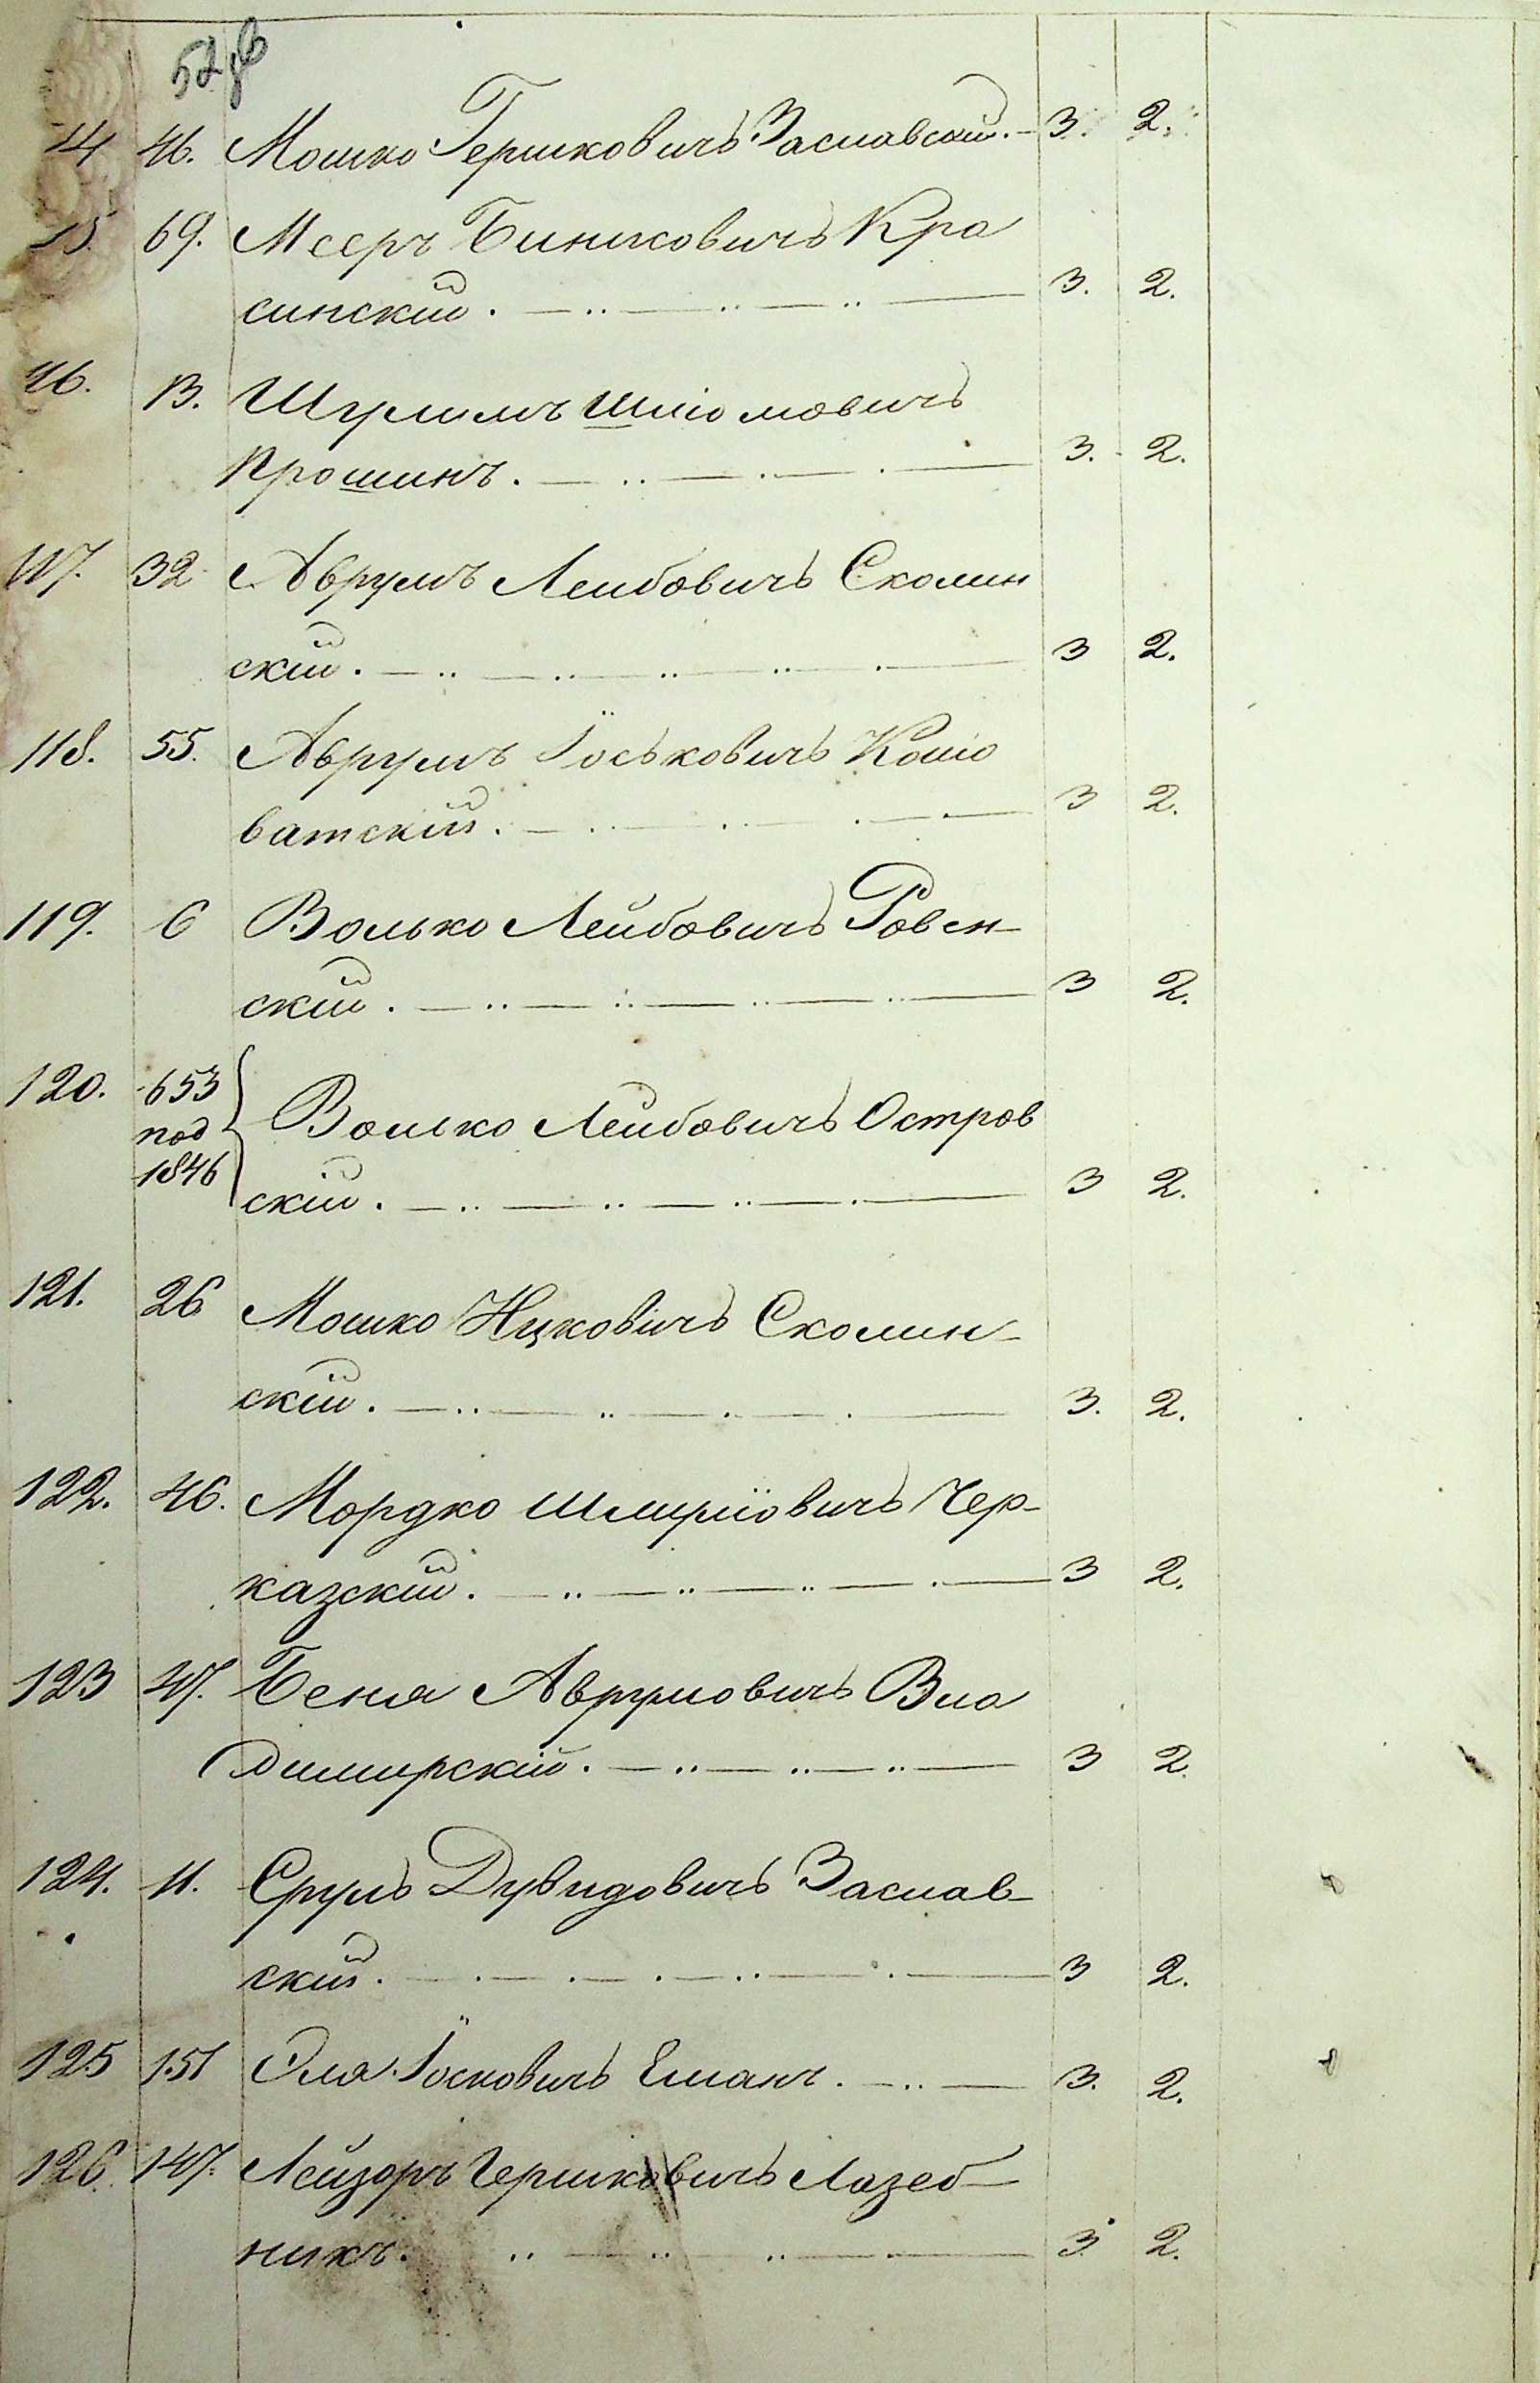 14 46. Мошко Гершковичъ Заславскій. — 3. 2.
15. 69. Мееръ Бинисовичъ Кра
синскій. — 3. 2.
16. 13. Шулимъ Шліомовичъ
Крошинъ. — 3. 2.
117. 32 Аврумъ Лейбовичъ Сколин
скій. — 3 2.
118. 55. Аврумъ Іоськовичъ Коше
ватскій. — 3 2.
119. 6 Волько Лейбовичъ Ровен-
скій. — 3 2.
120. 653
под
1846 Волько Лейбовичъ Остров
скій. — 3 2.
121. 26 Мошко Ицковичъ Сколин-
скій. — 3. 2.
122. 46. Мордко Шмуліовичъ Чер-
казскій. — 3 2.
123 47. Беня Аврумовичъ Вла
димирскій. — 3 2.
124. 11. Сруль Дувидовичъ Заслав-
скій. — 3 2.
125 151 Эля Іосковичъ Елманъ. — 3. 2.
126. 147. Лейзоръ Гершковичъ Лазеб-
никъ. — 3. 2.